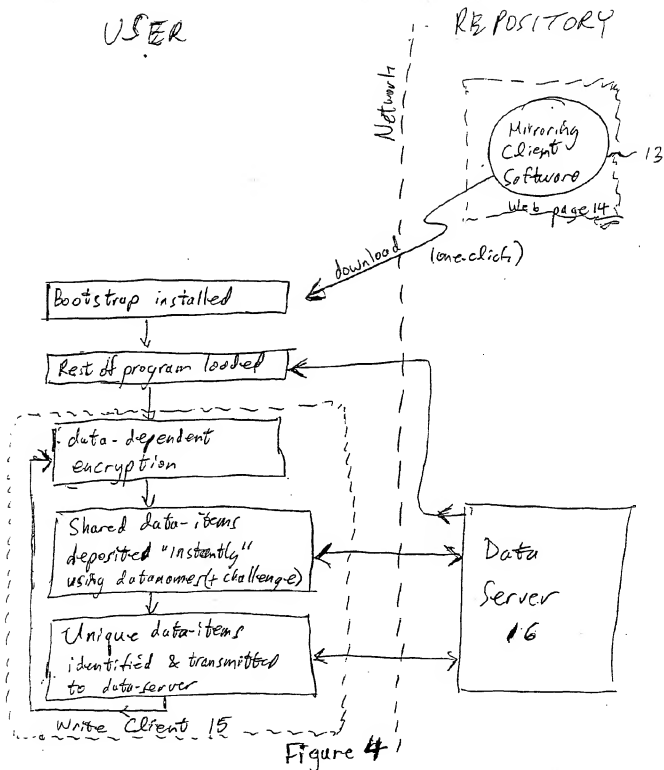 USER
REPOSITORY
Network
Mirroring
Client
Software
13
Web page 14
download
(one-click)
Bootstrap installed
Rest of program loaded
data-dependent
encryption
Shared data-items
deposited "instantly"
using datanames (+ challenge)
Unique data-items
identified & transmitted
to data-server
Write Client 15
Data
Server
16
Figure 4